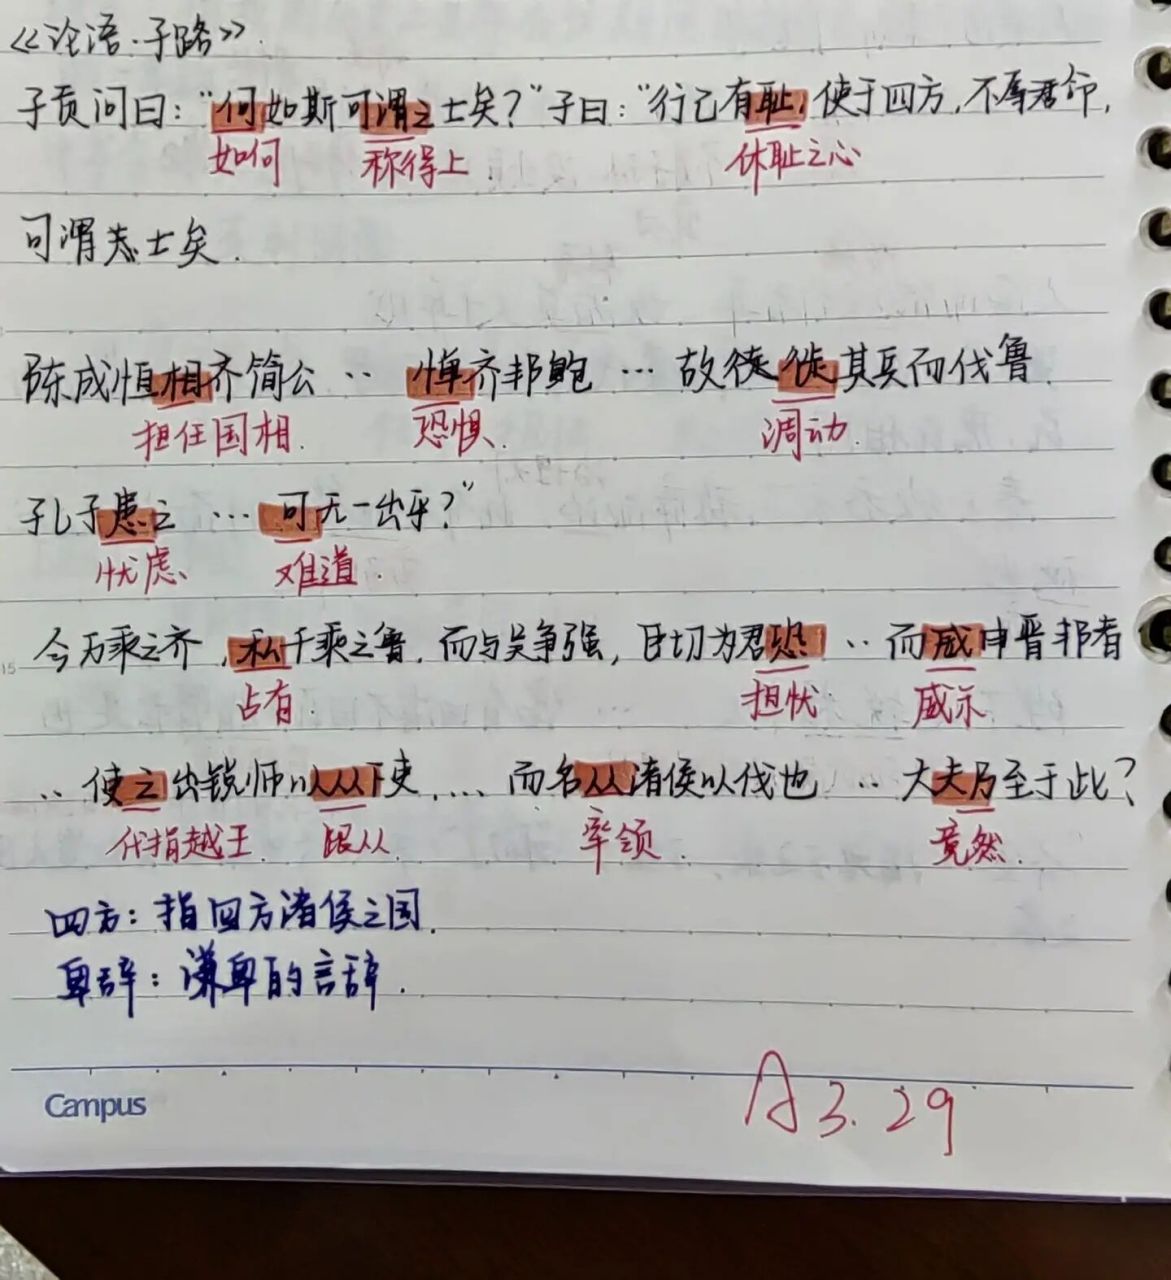 《论语·子路》
子贡问曰："何如斯可谓之士矣？"子曰："行己有耻，使于四方，不辱君命，
如何 称得上 休耻之心
可谓志士矣．
陈成恒相齐简公 ‥ 惮齐邦鲍 … 故徒徙其兵而伐鲁
担任国相． 恐惧． 调动．
孔子患之 … 可无一出乎？"
忧虑、 难道．
今万乘之齐，私千乘之鲁．而与吴争强，臣切为君恐 ‥ 而威申晋邦者
占有． 担忧． 威示
‥ 使之出锐师以从下吏 .... 而名从诸侯以伐也 ‥ 大夫乃至于此？
代指越王． 跟从． 率领． 竟然．
四方：指四方诸侯之国．
卑辞：谦卑的言辞．
Campus
A 3.29